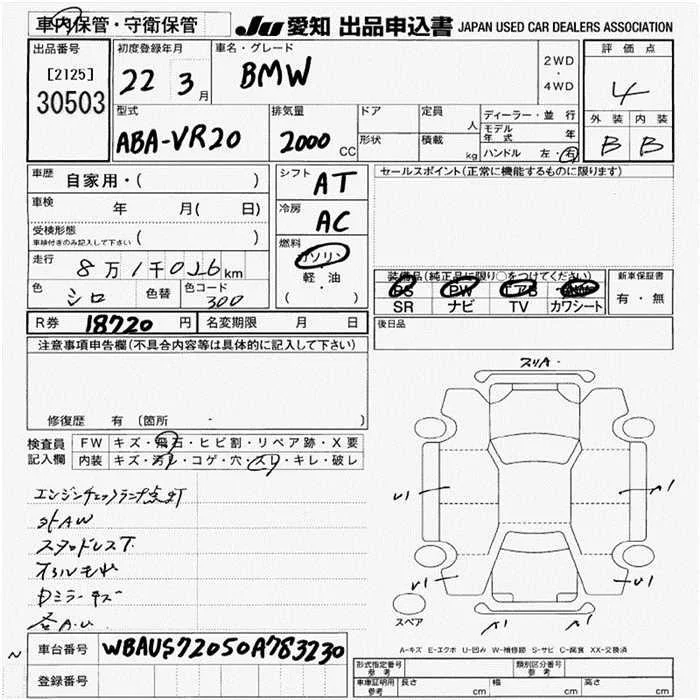 車内保管・守衛保管
JU 愛知 出品申込書 JAPAN USED CAR DEALERS ASSOCIATION
出品番号
[2125]
30503
初度登録年月
22 3月
車名・グレード
BMW
2WD
・
4WD
評価点
4
外装 内装
B B
型式
ABA-VR20
排気量
2000 CC
ドア
形状
定員 人
積載 kg
ディーラー・並行
モデル年式 年
ハンドル 左・右
車歴
自家用・( )
車検
年 月( 日)
受検形態
車検付きのみ記入して下さい ( )
走行
8万1千026km
色
シロ
色替
色コード
300
シフト
AT
冷房
AC
燃料
ガソリン
・
軽・油
( )
セールスポイント(正常に機能するものに限ります)
装備品(純正品に限り○をつけてください)
PS PW エアB
SR ナビ TV カワシート
新車保証書
有・無
R券 18720円
名変期限 月 日
後日品
注意事項申告欄(不具合内容等は具体的に記入して下さい)
修復歴 有 (箇所 )
検査員
記入欄
FW キズ・飛石・ヒビ割・リペア跡・X要
内装 キズ・汚レ・コゲ・穴・スリ・キレ・破レ
エンジンチェックランプ点灯
外AW
スタッドレスT
オイルモレ
Dミラーキズ
各A.U
スリA・
U1
A1
U1
U1
A1
A1
スペア
A-キズ E-エクボ U-凹み W-補修跡 S-サビ C-腐食 XX-交換済
車台番号
WBAUS72050A783230
登録番号
型式指定番号
参考
類別区分番号
参考
車庫証明用
参考
長さ cm
幅 cm
高さ cm